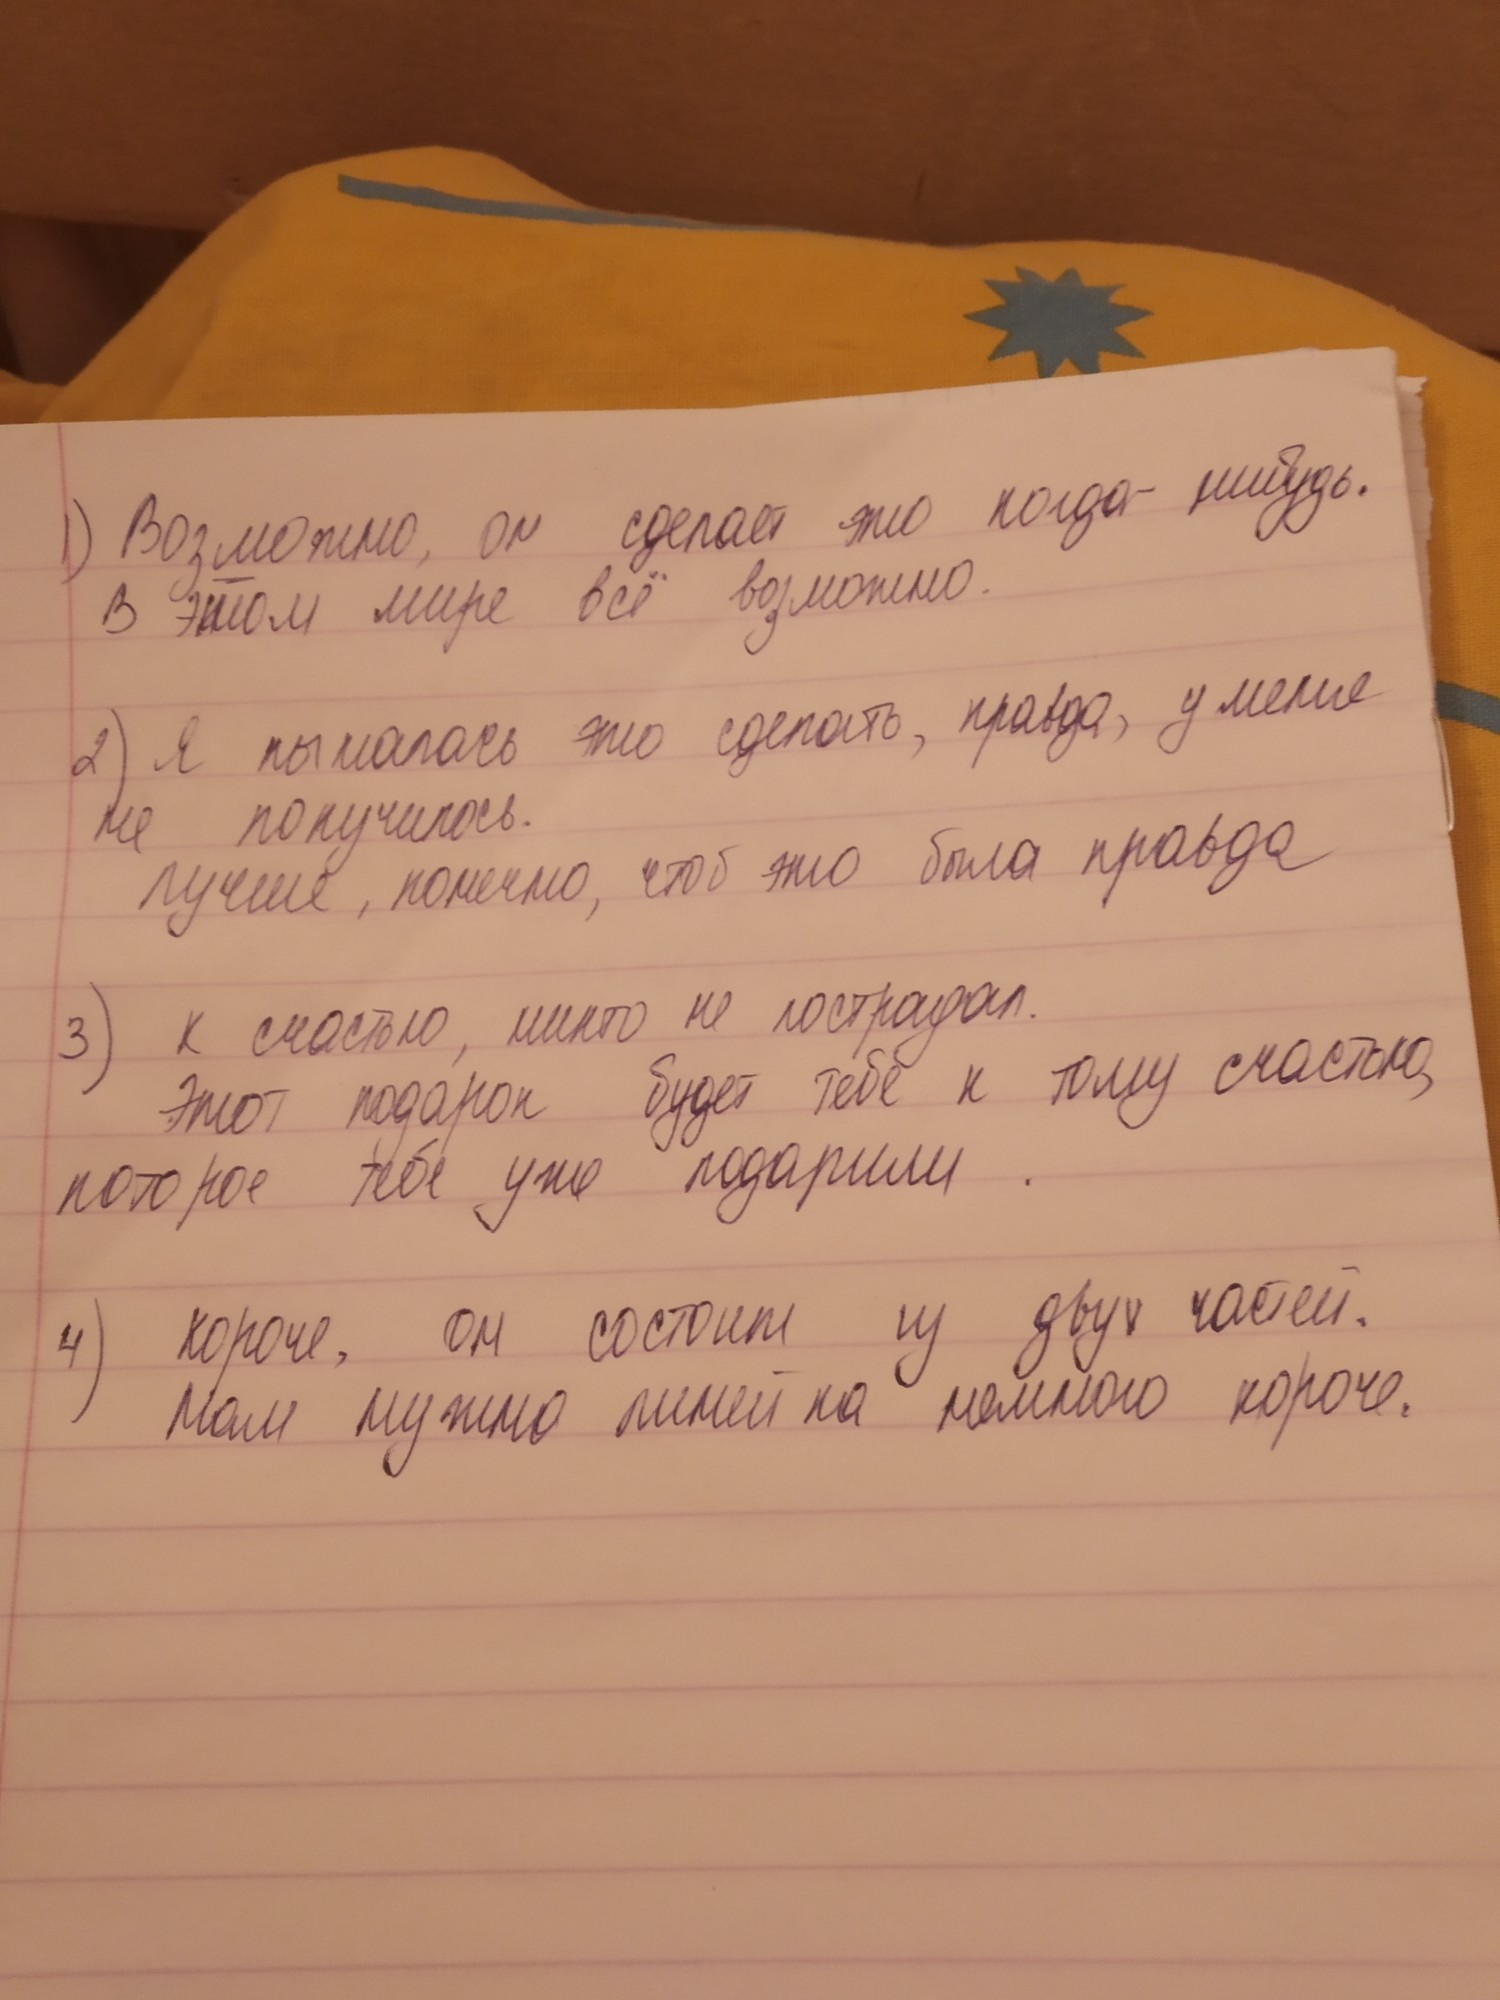 1) Возможно, он сделает это когда-нибудь.
В этом мире всё возможно.
2) Я пыталась это сделать, правда, у меня
не получилось.
Лучше, конечно, чтоб это была правда
3) К счастью, никто не пострадал.
Этот подарок будет тебе к тому счастью,
которое тебе уже подарили.
4) Короче, он состоит из двух частей.
Мам нужна линейка немного короче.